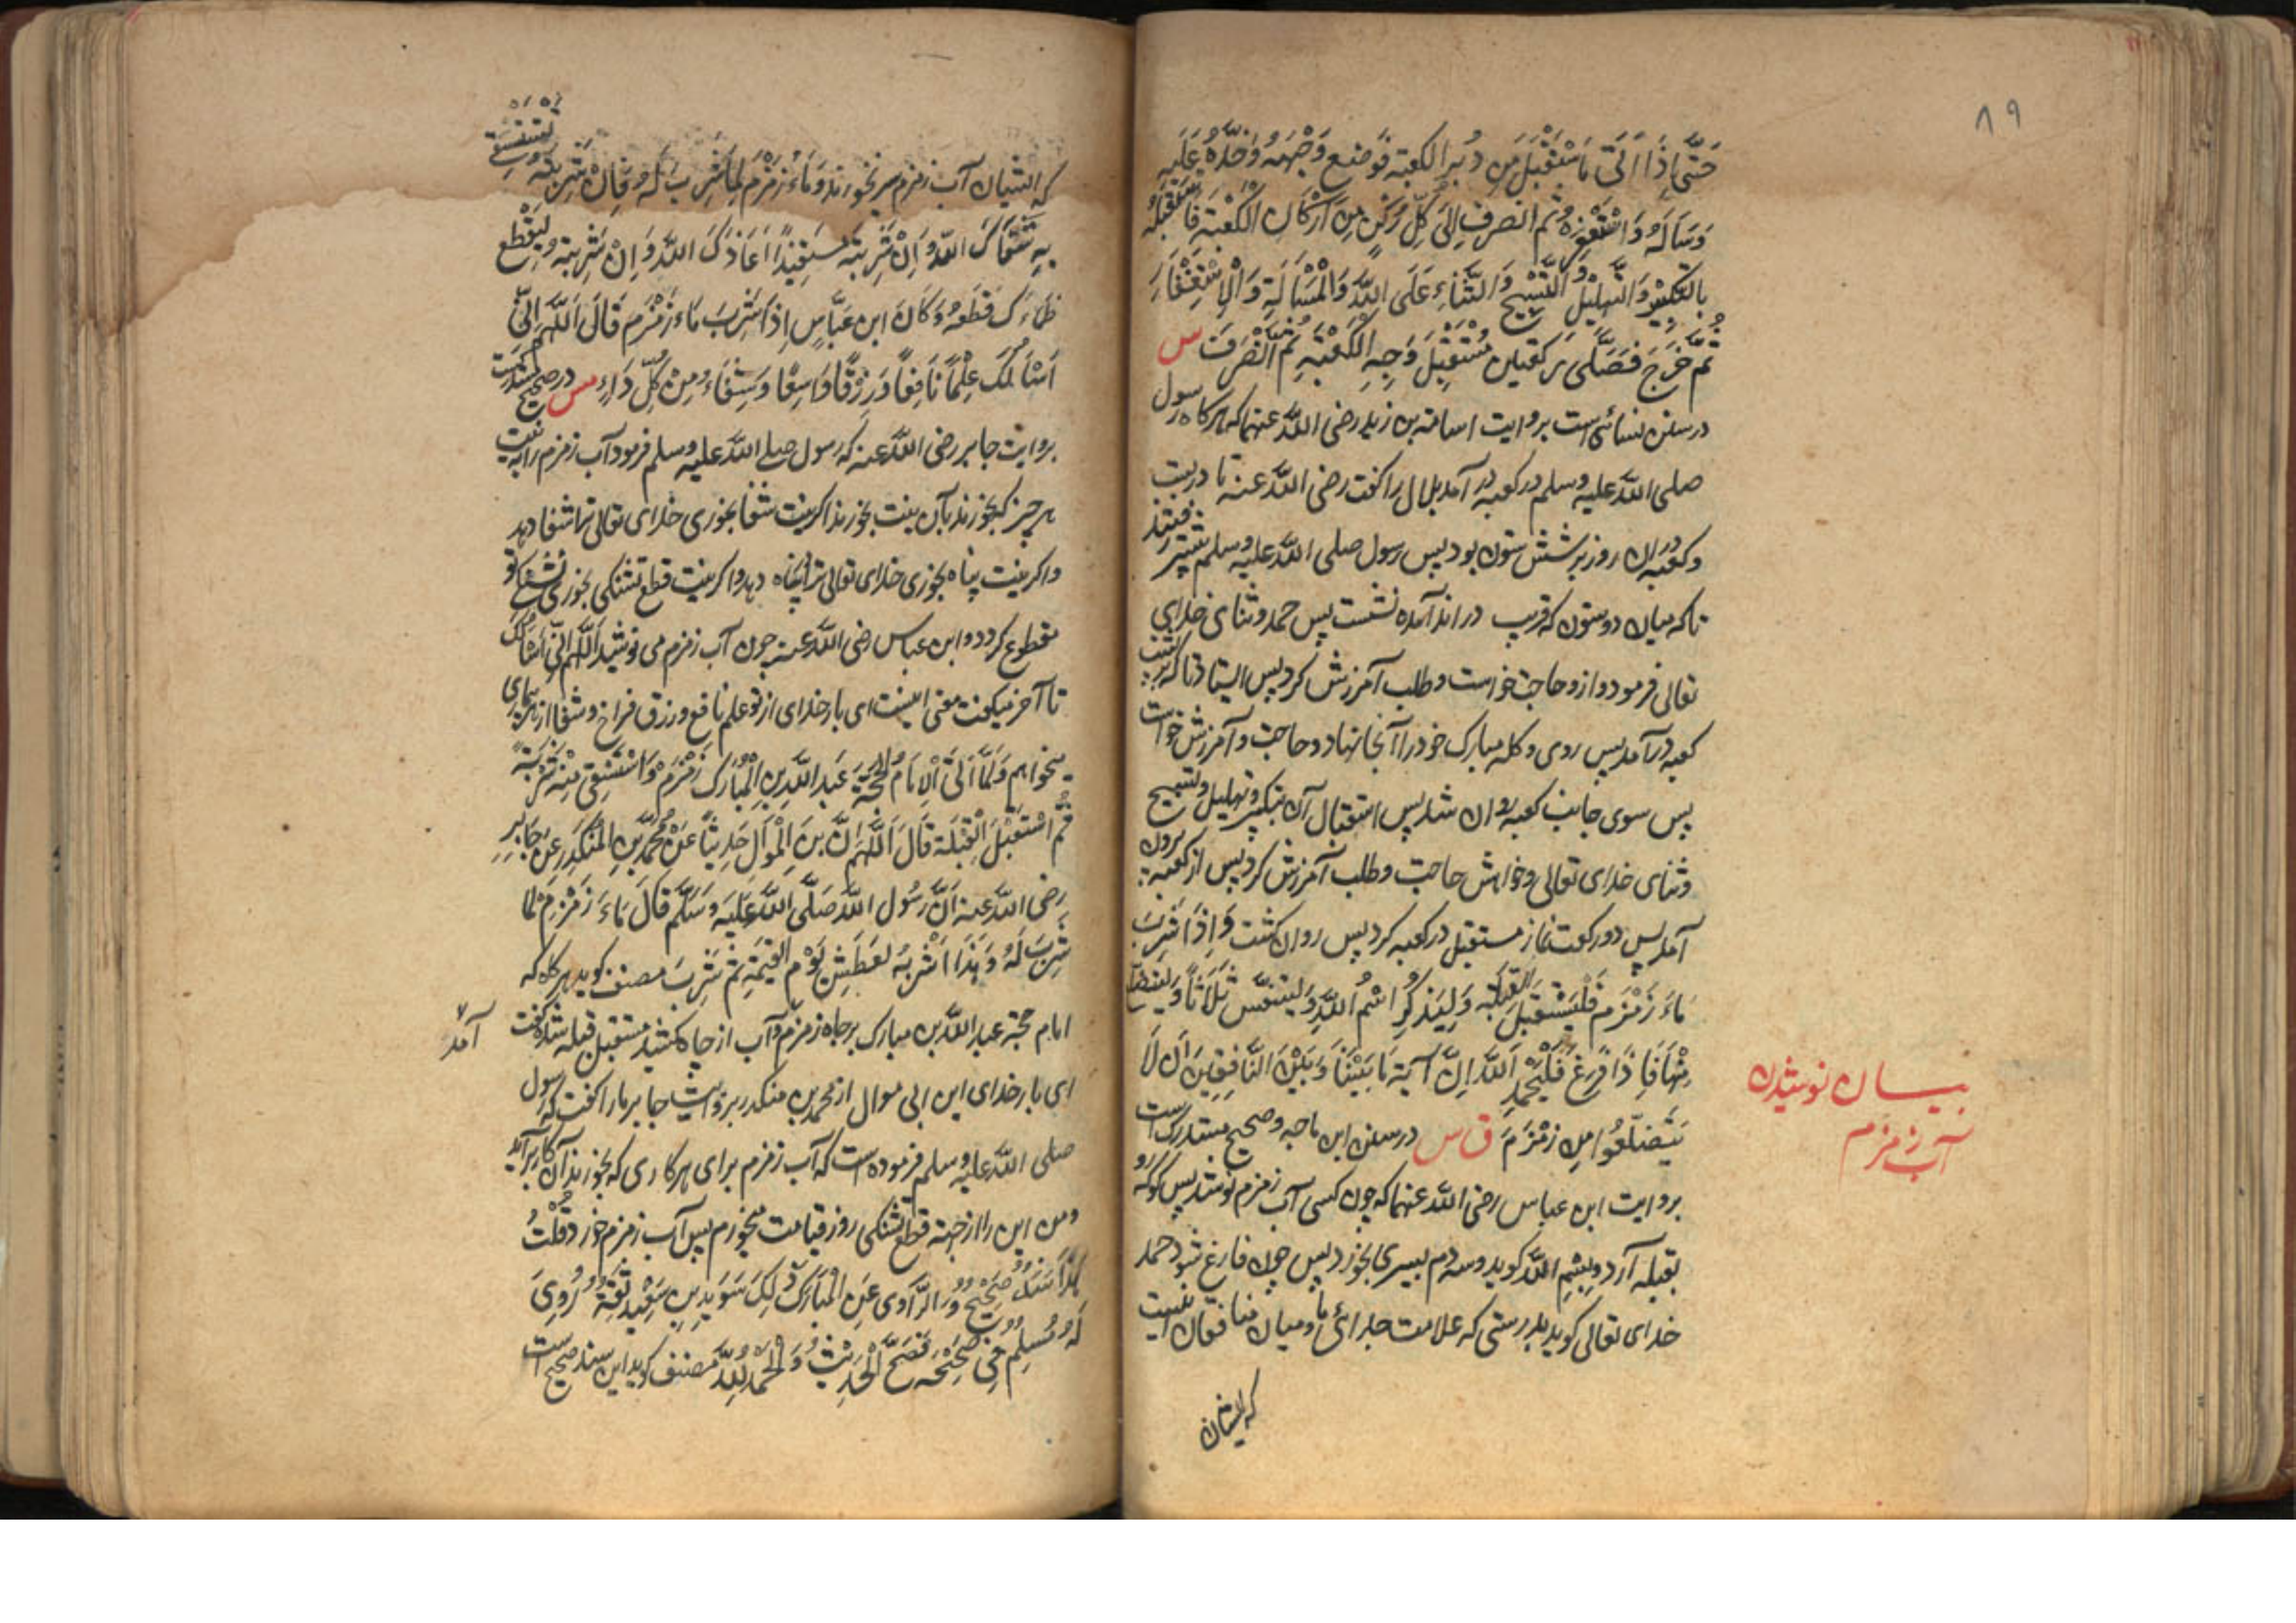 ٨٩
حَتَّى إِذَا أَتَى مَا اسْتَقْبَلَ مِن دُبُرِ الكعبة فوَضع وَجْهَهُ وَخَدَّهُ عَلَيه
وَسَأَلَهُ وَاسْتَغْفَرَهُ ثم انصرف إِلَى كُلِّ رُكْنٍ مِنَ أَرْكَانِ الْكَعْبَةِ فَاسْتَقْبَلَهُ
بالتكبير وَالتهليل وَالتَّسْبِيح وَالثَّنَاءِ عَلَى اللَّهِ وَالْمَسْأَلَةِ وَالْاِسْتِغْفَارِ
ثُمَّ خَرَجَ فَصَلَّى رَكعتين مُسْتَقْبِلَ وَجِهِ الْكَعْبَةِ ثُمَّ انْصَرَفَ س
در سنن نسائی است بروایت اسامة بن زید رضی اللّه عنهما که هرکاه رسول
صلی اللّه علیه وسلم در کعبه در آمد بلال را کفت رضی اللّه عنه تا در بیت
وکعبه دران روز بر شش ستون بود پس رسول صلی اللّه علیه وسلم پیشتر رفتند
تا که میان دو ستون که قریب در اند آمده نشست پس حمد وثنای خدای
تعالی فرمود وازو حاجت خواست وطلب آمرزش کرد پس ایستاد تا که
کعبه در آمد پس روی وکله مبارک خود را آنجا نهاد وحاجت وآمرزش خواست
پس سوی جانب کعبه روان شد پس استقبال آن بتکبیر وتهلیل وتسبیح
وثنای خدای تعالی وخواهش حاجت وطلب آمرزش کرد پس از کعبه بیرون
آمد پس دو رکعت نماز مستقبل در کعبه کرد پس روان کشت وَاِذَا شَرِبَ
مَاءَ زَمْزَم فَلْيَسْتَقْبِلَ القِبْلَة وَلِيَذْكُرِ اسْمُ اللَّهِ وَلِيتنفّس ثَلَاثاً وَلْيتضلّع
مِنْهَا فَاِذَا فَرِغَ فَلْيَحْمِدِ اللَّه اِنَّ آيَةَ مَا بَيْنَنَا وَبَيْنَ الْمُنَافِقِينَ أَن لَا
يَتَضَلَّعُوا مِن زَمْزَمَ ق س در سنن ابن ماجه وصحیح مستدرک است
بروایت ابن عباس رضی اللّه عنهما که چون کسی آب زمزم نوشد پس کو که رو
بقبله آرد وبِسْمِ اللّه کوید وسه دم بسیری بخورد پس چون فارغ شود حمد
خدای تعالی کوید بدرستی که علامت جدائ ما ومیان منافقان اینست
که ایشان
بیان نوشیدن
آب زمزم
که ایشان آب زمزم سیر نخورند وَمَاءُ زَمْزَم لِمَا شَرِبَ لَهُ فَاِنْ شَرِبتَهُ تَسْتَشْفِي
بِهِ شَفَاكَ اللّهُ وَاِنْ شَرِبتَه مُسْتَعِيذًا اَعَاذَكَ اللَّه وَاِنْ شَرِبتَه لِيَقْطع
ظَمَاءَك قَطَعَهُ وَكَانَ ابن عَبَّاسٍ اِذَا شَرِبَ مَاءَ زَمْزَم قَالَ اَللّهُم اِنِّي
اَسْأَلُكَ عِلْمًا نَافِعًا وَرِزْقًا وَاسِعًا وَشِفَاءً مِنْ كُلِّ دَاءٍ مس در صحیح مستدرکست
بروایت جابر رضی اللّه عنه که رسول صلے اللّه علیه وسلم فرمود آب زمزم را به نیت
هر چیز که بخورند بآن نیت بخورند اکر نیت شفا بخوری خدای تعالی ترا شفا دهد
واکر نیت پناه بخوری خدای تعالی ترا پناه دهد واکر نیت قطع تشنکی بخوری تشنکی تو
مقطوع کردد وابن عباس رضی اللّه عنه چون آب زمزم می نوشید اَللّهُم اِنّی اَسْأَلُكَ
تا آخر میکفت معنی اینست ای بار خدای از تو علم نافع ورزق فراخ وشفا از هر بیماری
میخواهم وَلَمَّا اَتَى الْاِمَامُ الحُجَّة عَبد اللَّه بن الْمُبَارَك زَمْزَمَ وَاسْتَسْقَى مِنْه شَرْبَةً
ثُمَّ اسْتَقْبَلَ الْقِبْلَة قَالَ اَللّهُم اِنَّ بنَ اَبِي الْمَوَال حَدِيثًا عَنْ مُحَمَّدِ بنِ المُنْكَدِر عَن جَابِر
رضی اللّه عنه اَنَّ رَسُول اللّه صَلَّى اللّه عَلَيْه وَسَلَّم قَالَ مَاءَ زَمْزَمَ لِمَا
شَرِبَ لَهُ وَهٰذَا اَشْرَبُهُ لِعَطَشِ يَوْم الْقِيٰمَةِ ثُمَّ شَرِبَ مصنف کوید هرکاه که
امام حجة عبد اللّه بن مبارک بر چاه زمزم آمد وآب از چاه کشید مستقبل قبله شده کفت
ای بار خدای ابن ابی موال از محمد بن منکدر بروایت جابر مارا کفت که رسول
صلی اللّه علیه وسلم فرموده است که آب زمزم برای هر کاری که بخورند آن کار بر آید
ومن این را از جهة قطع تشنکی روز قیامت میخورم پس آب زمزم خورد قُلْتُ
هٰذَا سَنَدٌ صَحِيحٌ وَالرَّاوِى عَنِ الْمُبَارَك ذٰلِكَ سُوَيد بن سَعِيد ثِقَةٌ رَوٰى
لَهُ مُسْلِم فِى صَحِيْحِه فَصَحَّ الْحَدِيْثُ وَالْحَمْدُ لِلّه مصنف کوید این سند صحیح است